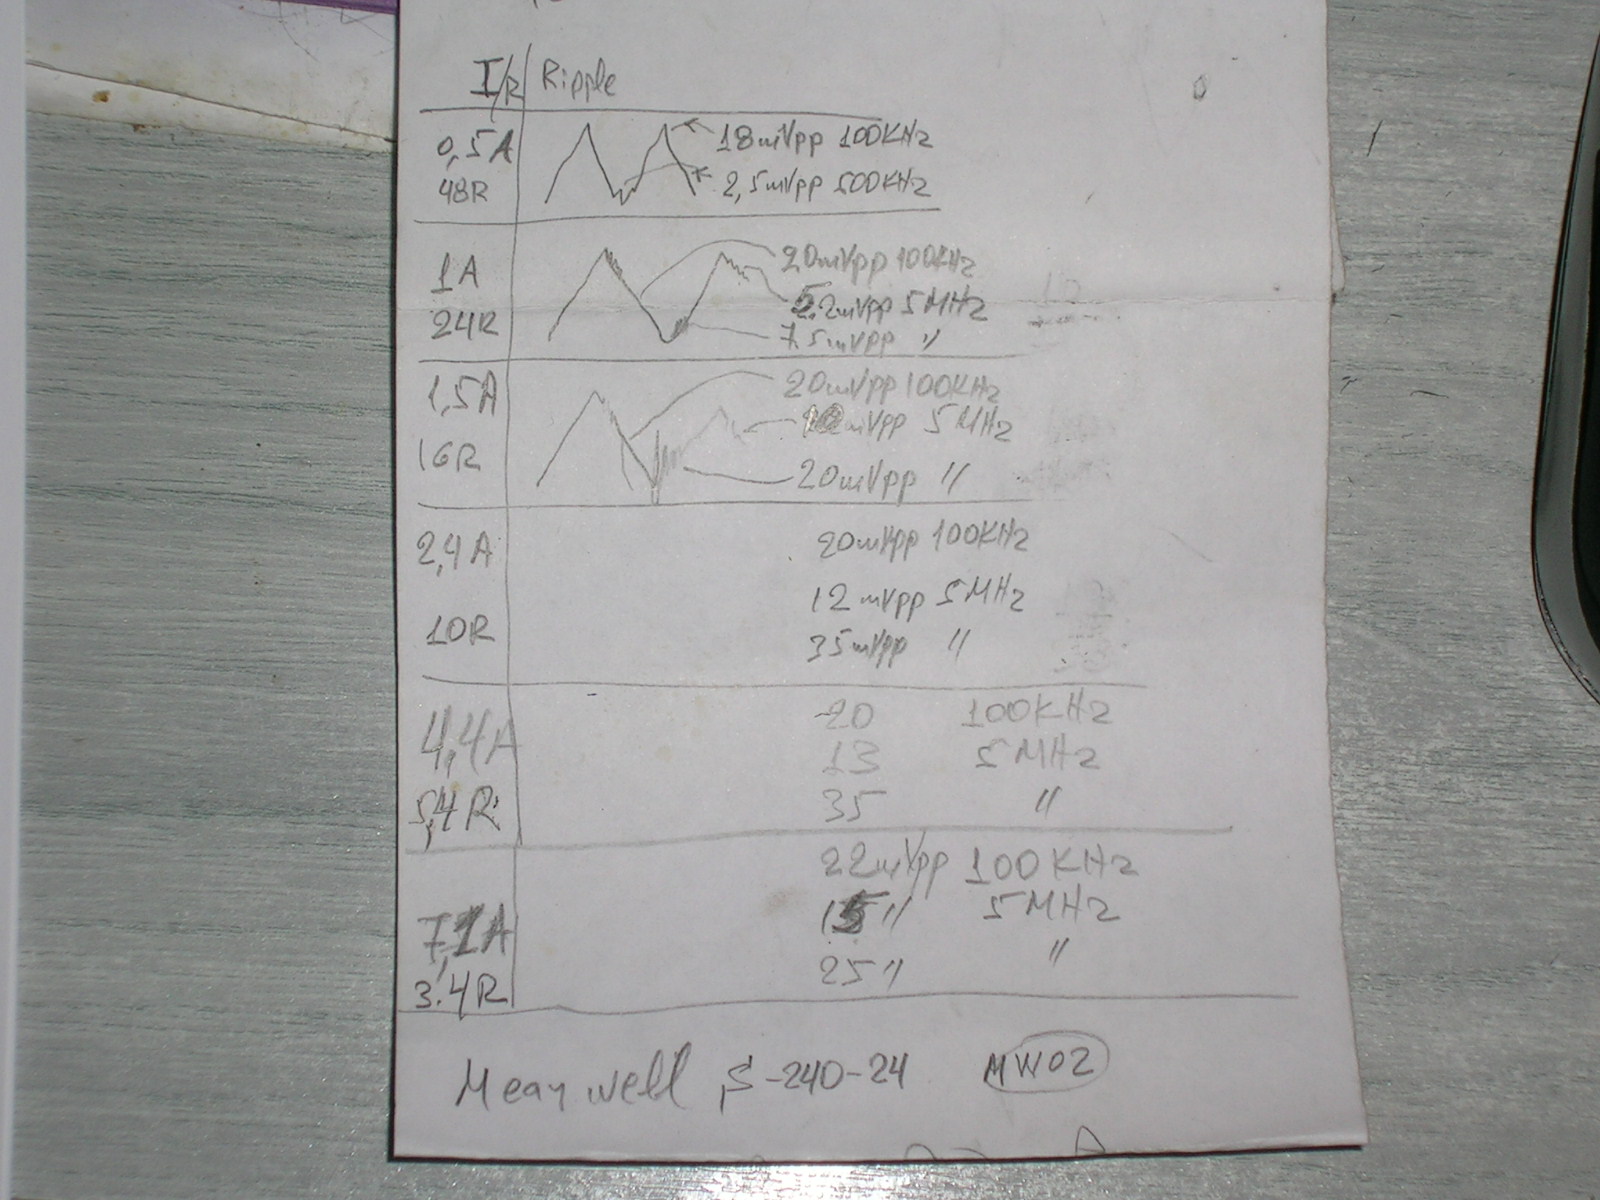 I/R Ripple
0,5A 18mVpp 100KHz
48R 2,5mVpp 500KHz
1A 20mVpp 100KHz
5.2mVpp 5MHz
24R 7.5mVpp "
1,5A 20mVpp 100KHz
10mVpp 5MHz
16R 20mVpp "
2,4A 20mVpp 100KHz
12mVpp 5MHz
10R 35mVpp "
4,4A 20 100KHz
13 5MHz
5,4R 35 "
22mVpp 100KHz
7,1A 15 " 5MHz
3.4R 25 " "
Mean well S-240-24 MW02